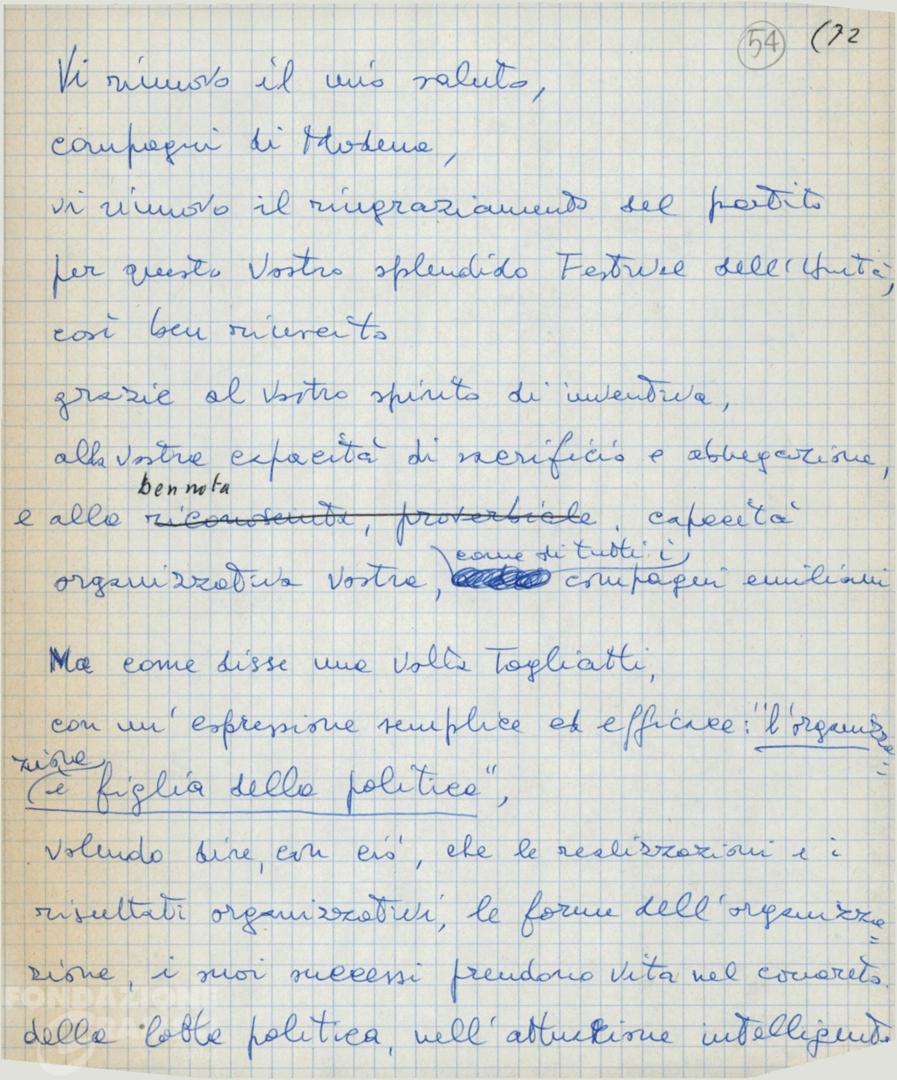 54 (72
Vi rinnovo il mio saluto,
compagni di Modena,
vi rinnovo il ringraziamento del partito
per questo vostro splendido Festival dell'Unità,
così ben riuscito
grazie al vostro spirito di inventiva,
alla vostra capacità di sacrificio e abnegazione,
ben nota
e alla riconosciuta, proverbiale, capacità
come di tutti i
organizzativa vostra, compagni emiliani
Ma come disse una volta Togliatti,
con un'espressione semplice ed efficace: "l'organizza=
zione
è figlia della politica",
volendo dire, con ciò, che le realizzazioni e i
risultati organizzativi, le forme dell'organizza=
zione, i suoi successi prendono vita nel concreto
della lotta politica, nell'attuazione intelligente
FONDAZIONE